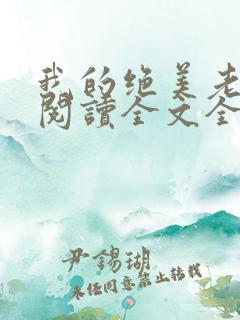 我的绝美老
阅读全文全
尹锡瑚
未经同意禁止转载